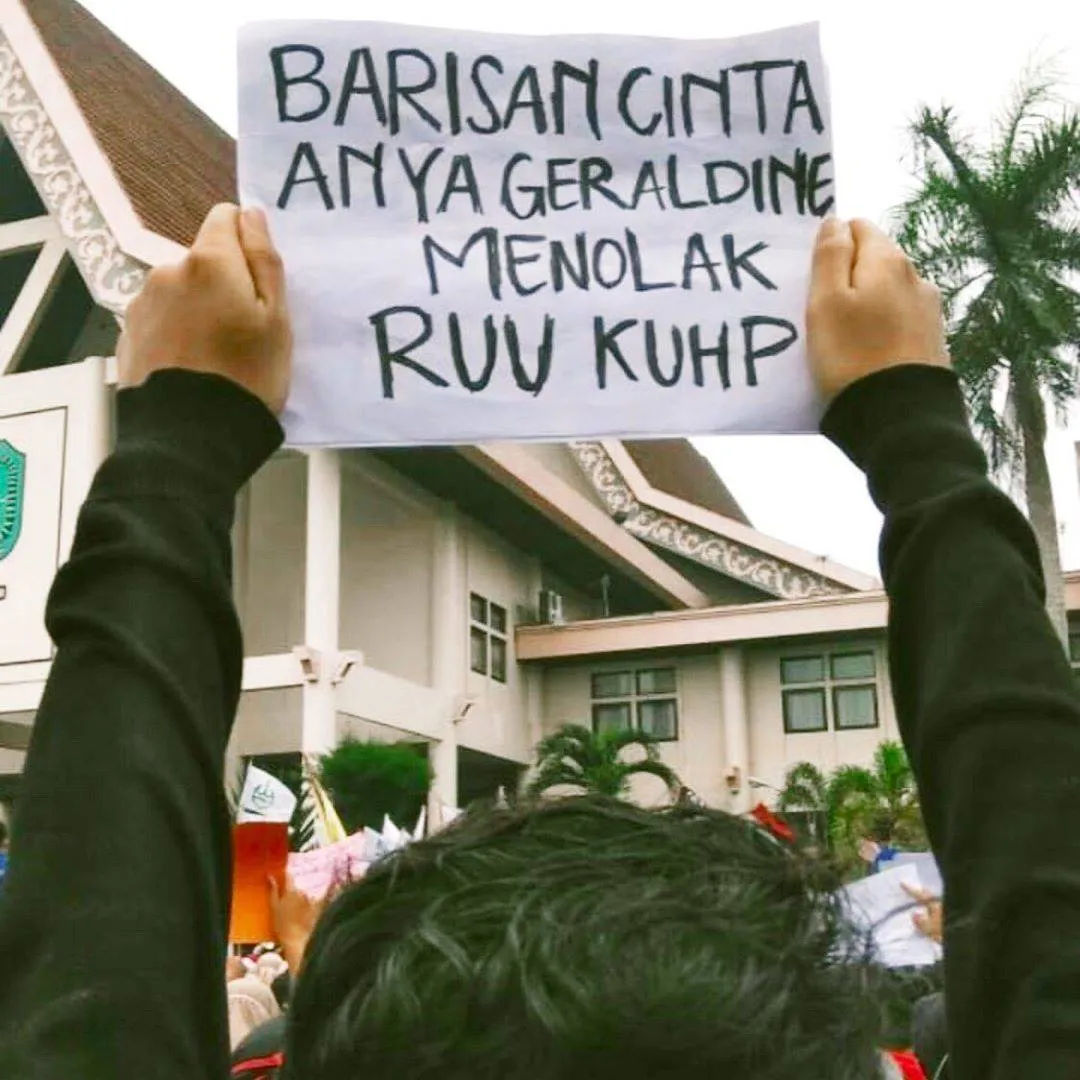 BARISAN CINTA
ANYA GERALDINE
MENOLAK
RUU KUHP